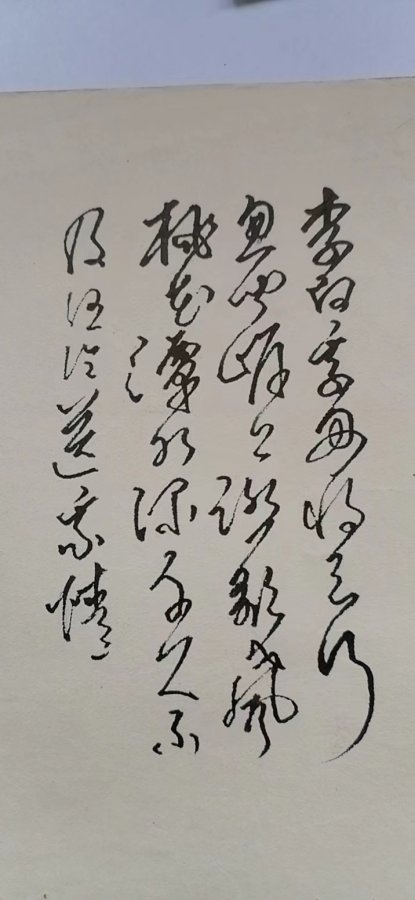 李白乘舟將欲行
忽聞岸上踏歌聲
桃花潭水深千尺不
及汪倫送我情